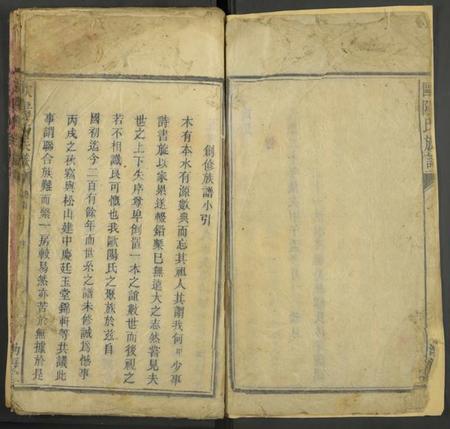 歐陽氏族譜
創修族譜小引
木有本水有源數典而忘其祖人其謂我何 少事
詩書旋以家累逐輟鉛槧已無遠大之志然嘗見夫
世之上下失序尊卑倒置一本之誼數世而後視之
若不相識良可慨也我歐陽氏之聚族於茲自
國初迄今二百有餘年而世系之譜未修誠為憾事
丙戌之秋寫與松山建中慶廷玉堂錦軒等共議此
事謂聯合族難而梁一房較易然亦苦於無據於是